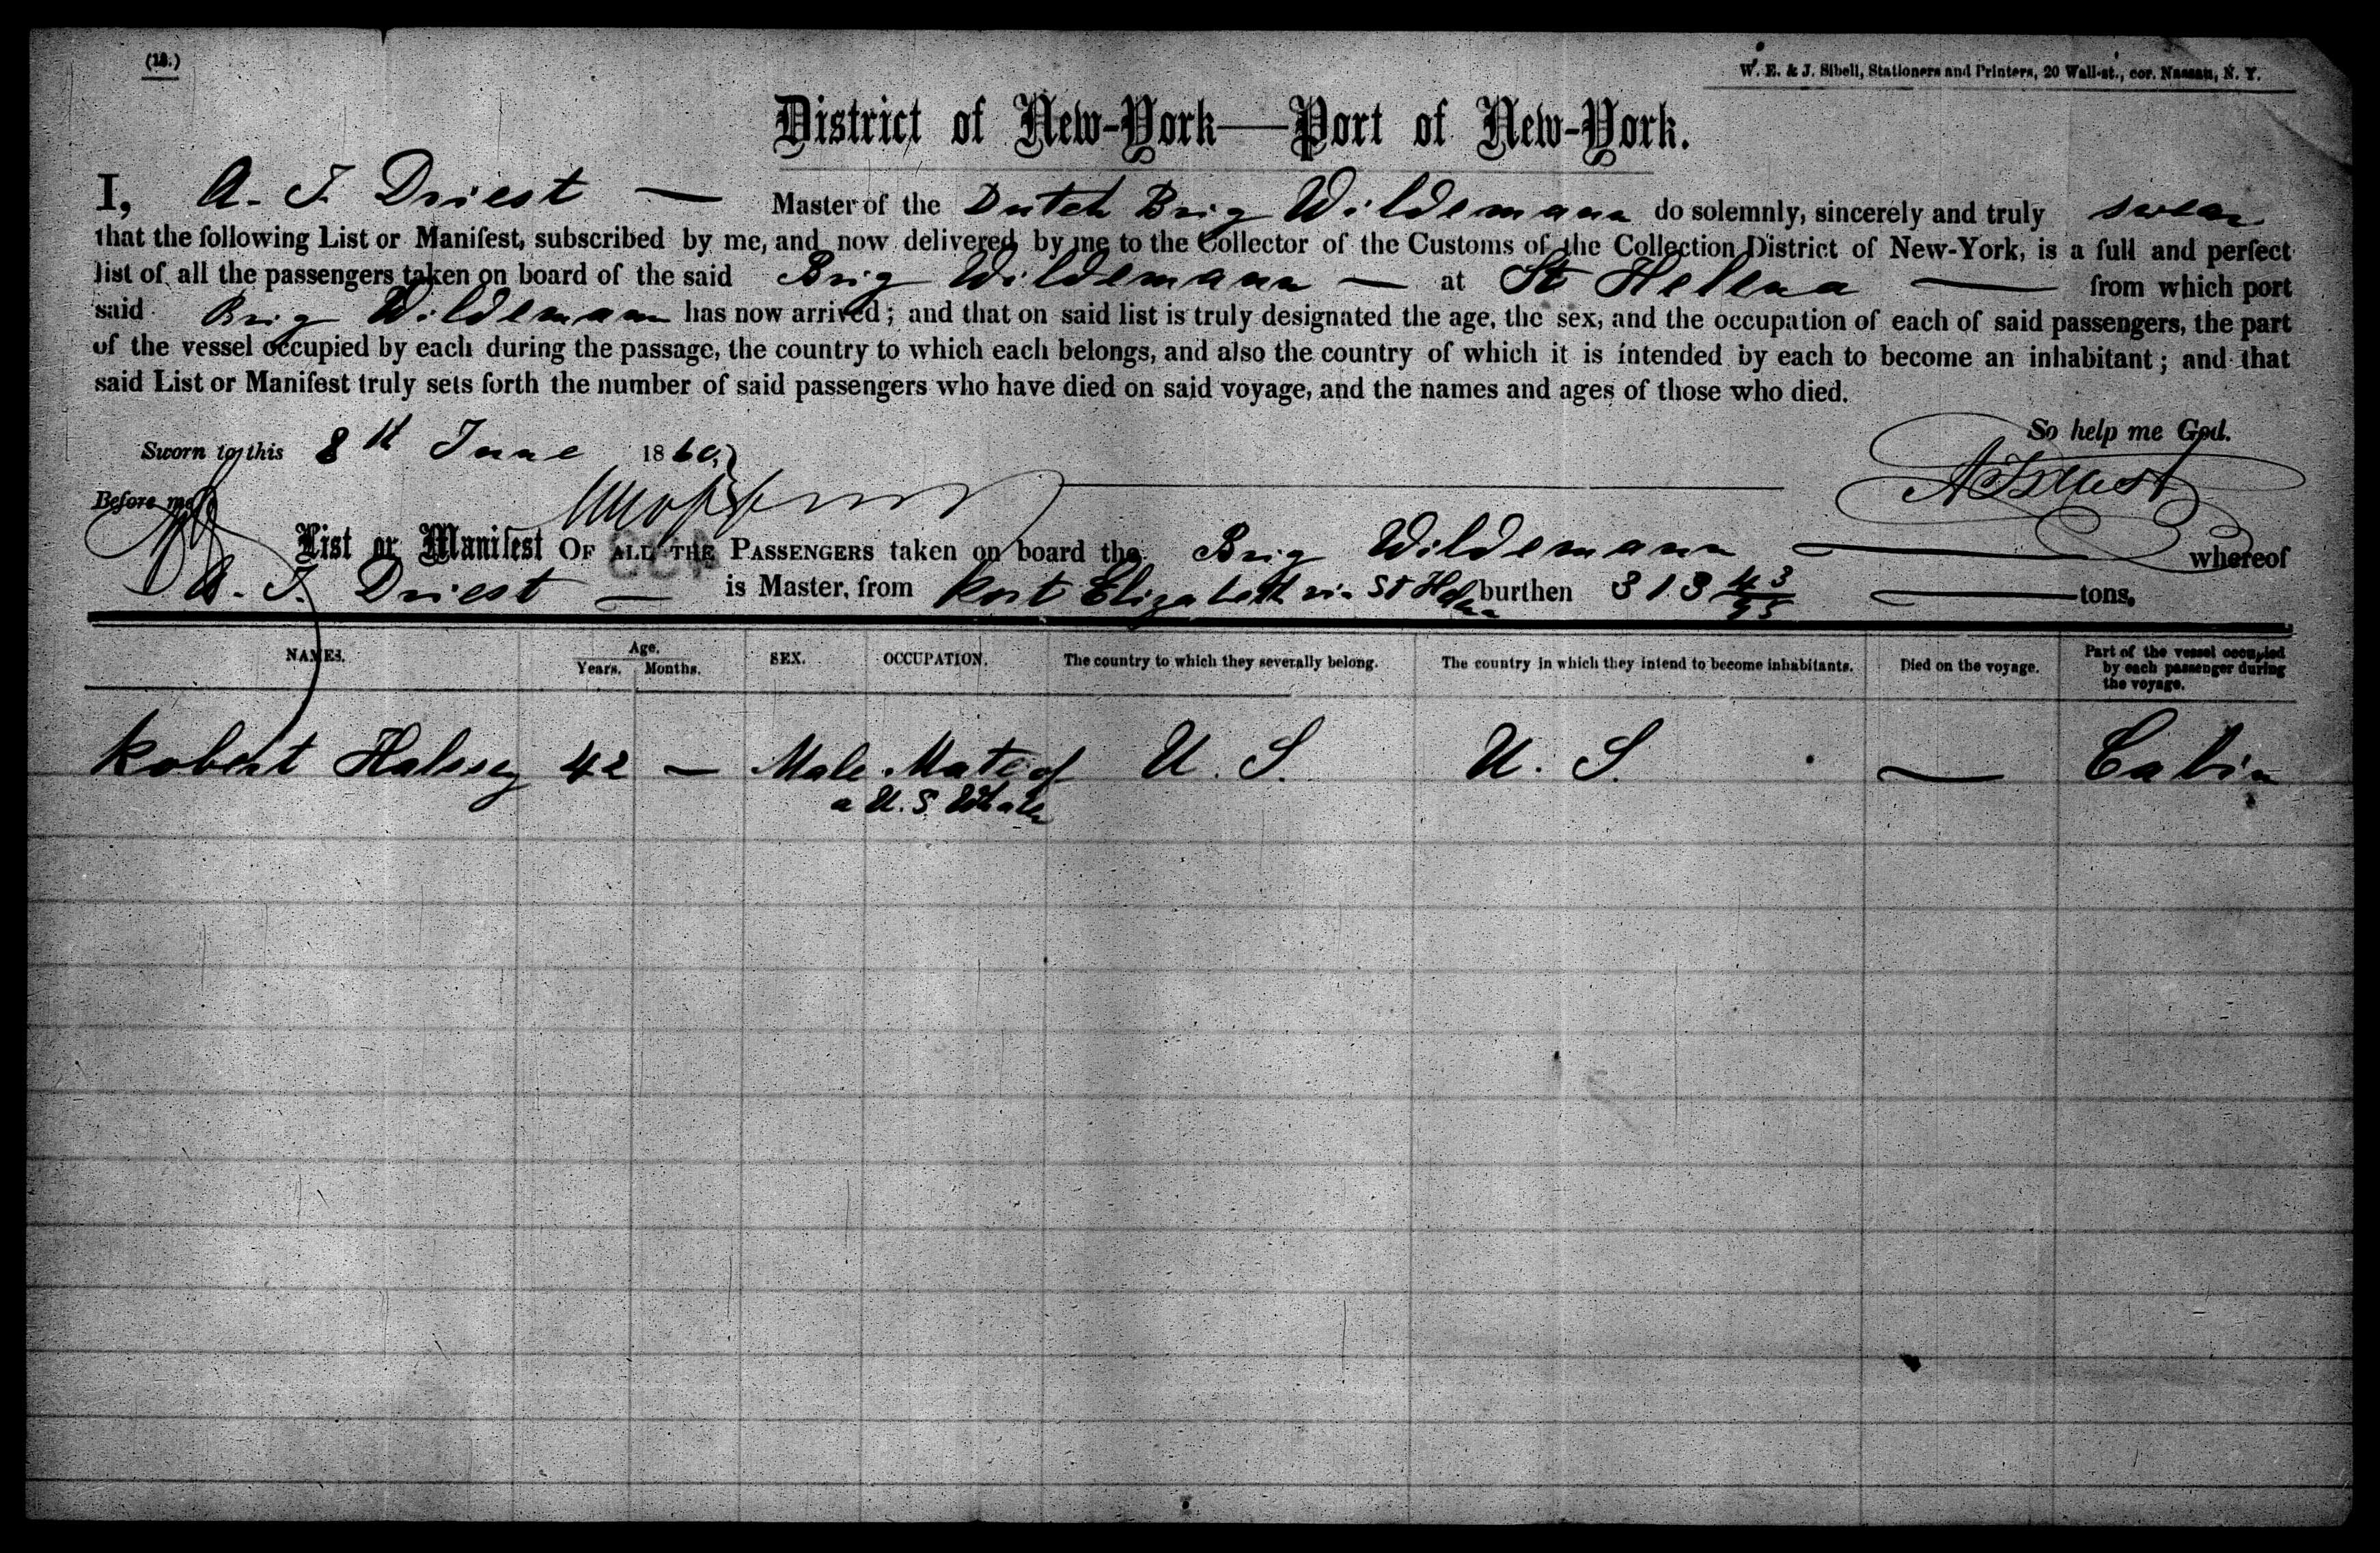 (13.)
W. E. & J. Sibell, Stationers and Printers, 20 Wall-st., cor. Nassau, N. Y.
District of New-York—Port of New-York.
I, A. T. Driest — Master of the Dutch Brig Wildemann do solemnly, sincerely and truly swear
that the following List or Manifest, subscribed by me, and now delivered by me to the Collector of the Customs of the Collection District of New-York, is a full and perfect
list of all the passengers taken on board of the said Brig Wildemann — at St Hellena — from which port
said Brig Wildemann has now arrived; and that on said list is truly designated the age, the sex, and the occupation of each of said passengers, the part
of the vessel occupied by each during the passage, the country to which each belongs, and also the country of which it is intended by each to become an inhabitant; and that
said List or Manifest truly sets forth the number of said passengers who have died on said voyage, and the names and ages of those who died.
So help me God.
Sworn to this 8th June 1860,
Before me
List or Manifest OF ALL THE PASSENGERS taken on board the Brig Wildemann — whereof
A. T. Driest — is Master, from Port Elizabeth via St Helena burthen 313 43/95 — tons.
NAMES. Age. Years. Months. SEX. OCCUPATION. The country to which they severally belong. The country in which they intend to become inhabitants. Died on the voyage. Part of the vessel occupied by each passenger during the voyage.
Robert Halsey 42 — Male Mate of U. S. U. S. — Cabin
a U. S. Whaler